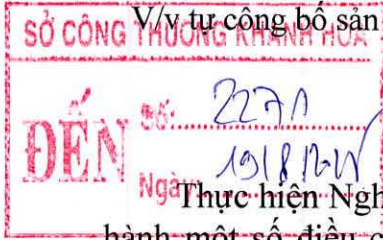 V/v tự công bố sản
SỞ CÔNG THƯƠNG KHÁNH HOÀ
ĐẾN
Số:
Ngày:
Thực hiện Ngh
hành một số điều c